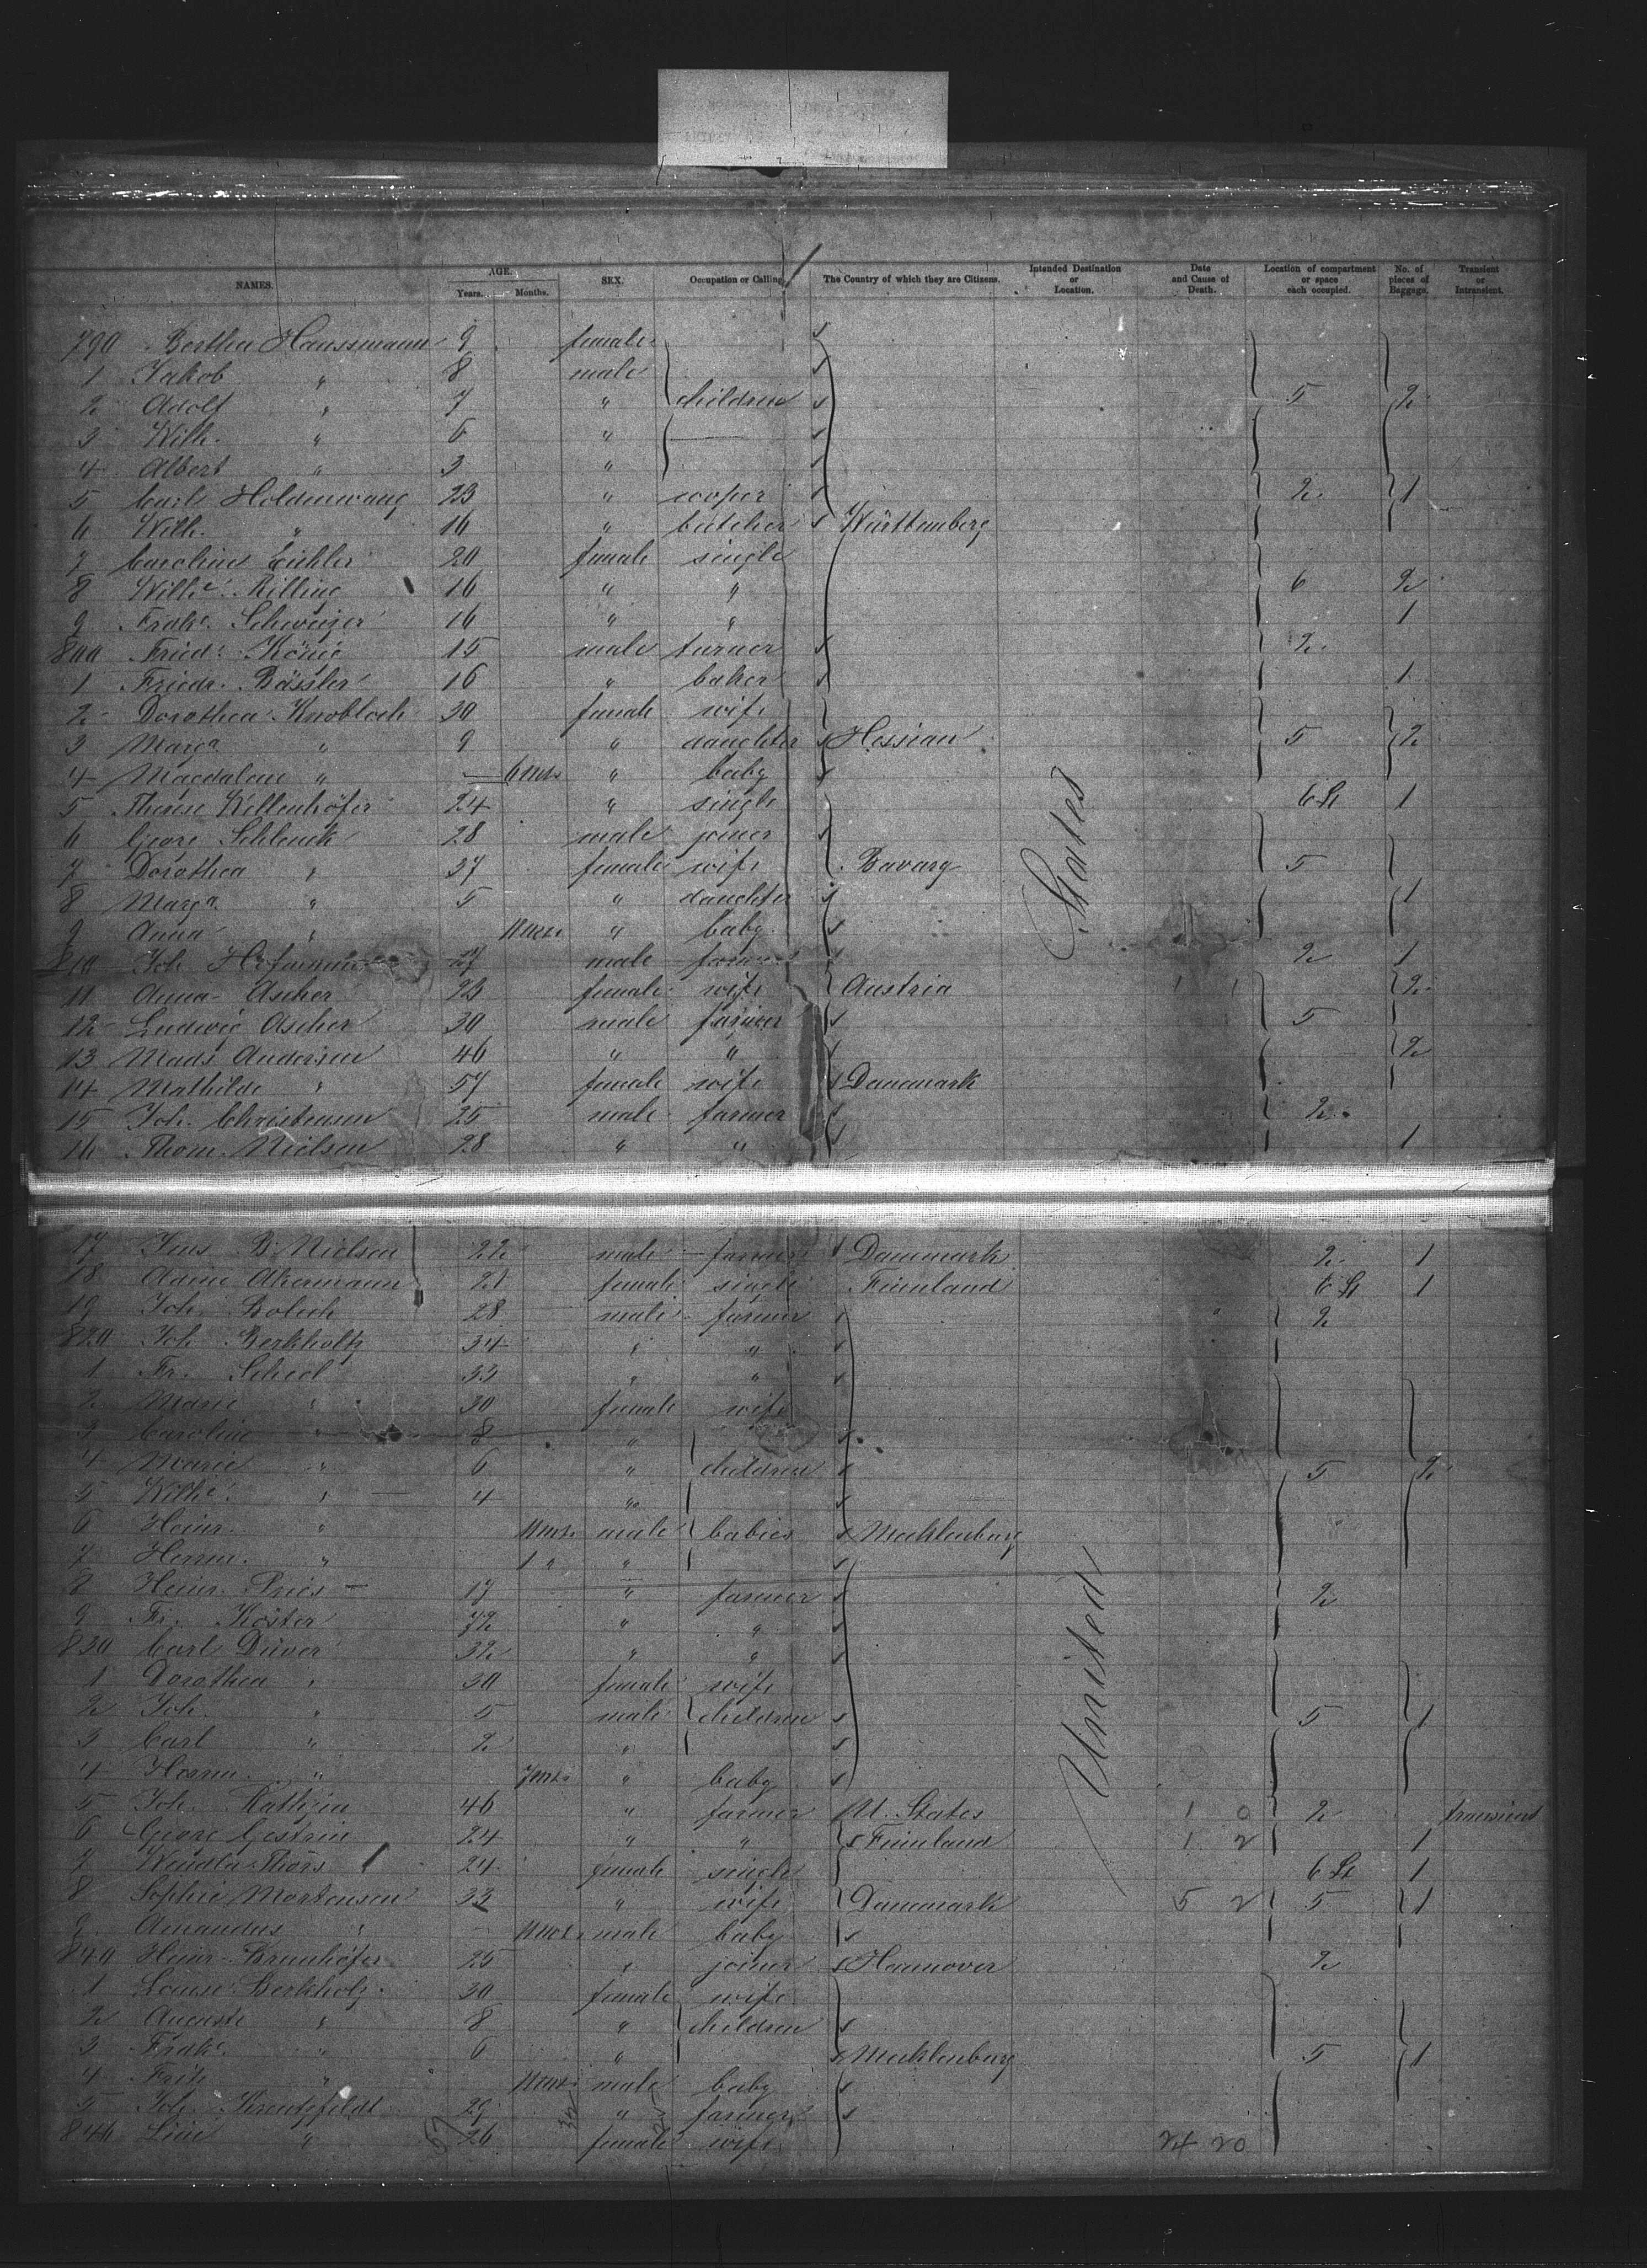 NAMES. AGE. Years. Months. SEX. Occupation or Calling The Country of which they are Citizens. Intended Destination or Location. Date and Cause of Death. Location of compartment or space each occupied. No. of pieces of Baggage. Transient or Intransient.
790 Bertha Haussmann 9 female
1 Jakob " 8 male
2 Adolf " 7 " children 5 2
3 Wilh. " 6 "
4 Albert " 3 "
5 Carl Holdenwang 23 " cooper 2 1
6 Wilh. " 16 " butcher Württemberg
7 Caroline Eichler 20 female single
8 Wilhe. Rilling 16 " " 6 2
9 Fredke. Schweizer 16 " " 1
800 Fried: König 15 male turner 2
1 Friedr. Bässler 16 " baker 1
2 Dorothea Knobloch 30 female wife
3 Marga " 9 " daughter Hessian 5 2
4 Magdalene " — 6 mts " baby
5 Therese Kellenhöfer 24 " single 6 St 1
6 Georg Schlenk 28 male joiner
7 Dorothea " 37 female wife Bavary 5
8 Marga " 5 " daughter 1
9 Anna " 11 mts " baby
810 Joh. 27 male farmer 2 1
11 Anna Ascher 23 female wife Austria 2
12 Ludwig Ascher 30 male farmer 5
13 Mads Andersen 46 " " 2
14 Mathilde " 57 female wife Danemark
15 Joh. Christensen 25 male farmer 2
16 Thom. Nielsen 28 " " 1
States
17 Jens B. Nielsen 22 male farmer Danemark 2 1
18 Akermann 21 female single Finnland 6 St 1
19 Joh. 28 male farmer 2
820 Joh. Berkholtz 34 " "
1 Fr. Scheel 33 " "
2 Marie " 30 female wife
3 Caroline " 8 "
4 Marie " 6 " children 5 2
5 Wilhe. " 4 "
6 Heinr. " 11 mts. male babies Mecklenburg
7 Herm. " 1 " "
8 Heinr. Pries 17 " farmer 2
9 Fr. Köster 72 " "
830 Carl Düver 32 " "
1 Dorothea " 30 female wife
2 Joh. " 5 male children 5 1
3 Carl " 2 "
4 Herm. " 7 mts " baby
5 Joh. 46 " farmer U. States 1 0 2 transient
6 Georg 24 " " Finnland 1 2 1
7 Wendla Thors 24 female single 6 St 1
8 Sophie Mortensen 33 " wife Danemark 5 2 5 1
9 Amandus " 11 mts male baby
840 Heinr. 25 " joiner Hannover 2
1 Louise Berkholz 30 female wife
2 Auguste " 8 " children
3 Fredke. " 6 " Mecklenburg 5 1
4 Fritz " 11 mts male baby
5 Joh. Kreutzfeldt 29 " farmer
846 " 26 female wife 24 20
United